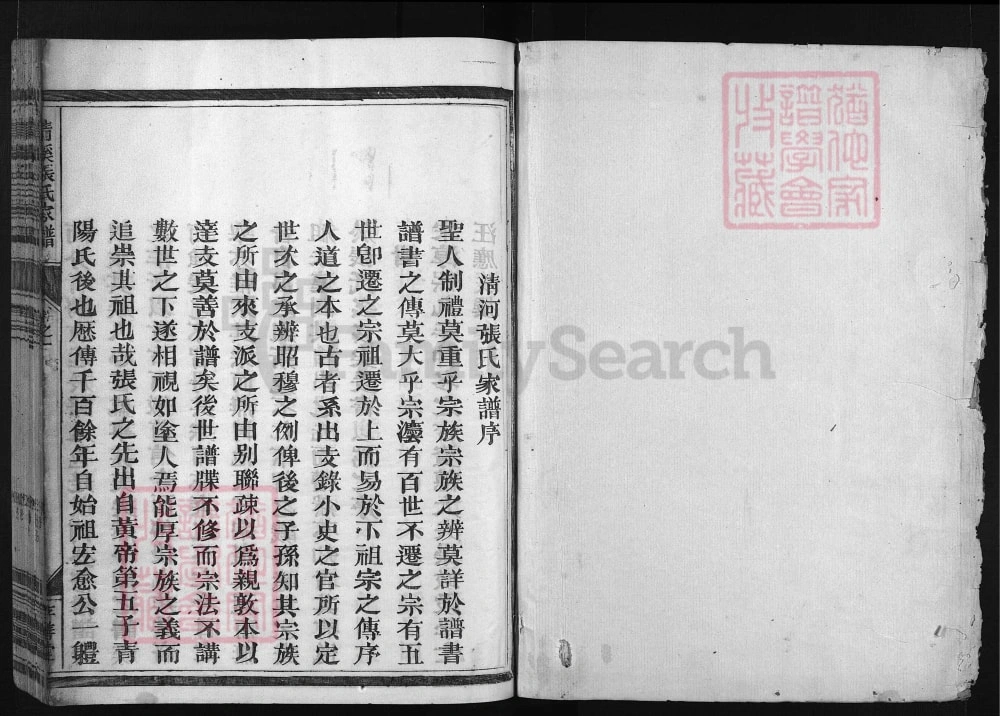 清河張氏家譜序
聖人制禮莫重乎宗族宗族之辨莫詳於譜書
譜書之傳莫大乎宗灋有百世不遷之宗有五
世卽遷之宗祖遷於上而易於下祖宗之傳序
人道之本也古者系出支錄小史之官所以定
世次之承辨昭穆之例俾後之子孫知其宗族
之所由來支派之所由别聯疎以爲親敦本以
達支莫善於譜矣後世譜牒不修而宗法不講
數世之下遂相視如塗人焉能厚宗族之義而
追崇其祖也哉張氏之先出自黃帝第五子青
陽氏後也歷傳千百餘年自始祖玄愈公一軆
張氏家譜
猶他家
譜學會
特藏
FamilySearch